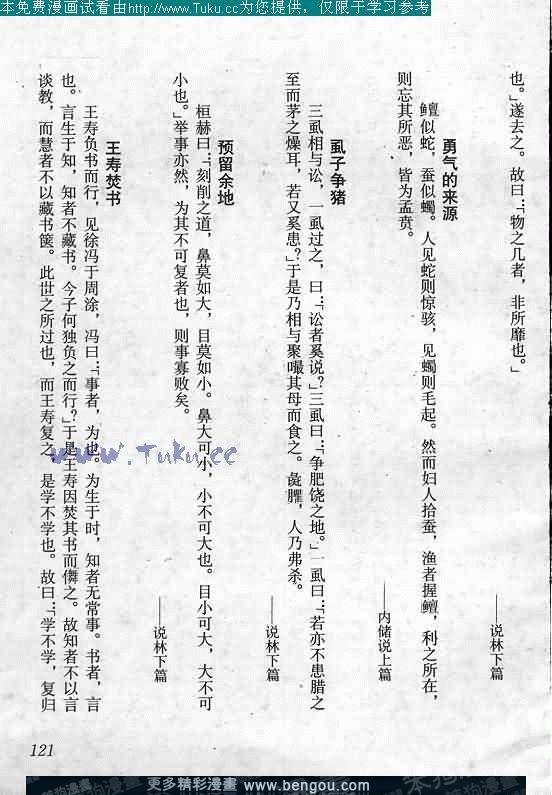 本免费漫画试看由http://www.Tuku.cc为您提供，仅限于学习参考
也。”遂去之。故曰：“物之几者，非所靡也。”
——说林下篇
勇气的来源
鳣似蛇，蚕似蠋。人见蛇则惊骇，见蠋则毛起。然而妇人拾蚕，渔者握鳣，利之所在，
则忘其所恶，皆为孟贲。
——内储说上篇
虱子争猪
三虱相与讼，一虱过之，曰：“讼者奚说？”三虱曰：“争肥饶之地。”一虱曰：“若亦不患腊之
至而茅之燥耳，若又奚患？”于是乃相与聚嘬其母而食之。彘臞，人乃弗杀。
——说林下篇
预留余地
桓赫曰：“刻削之道，鼻莫如大，目莫如小。鼻大可小，小不可大也。目小可大，大不可
小也。”举事亦然，为其不可复者也，则事寡败矣。
——说林下篇
王寿焚书
王寿负书而行，见徐冯于周涂，冯曰：“事者，为也。为生于时，知者无常事。书者，言
也。言生于知，知者不藏书。今子何独负之而行？”于是王寿因焚其书而儛之。故知者不以言
谈教，而慧者不以藏书箧。此世之所过也，而王寿复之，是学不学也。故曰：“学不学，复归
www.Tuku.cc
121
更多精彩漫畫 www.bengou.com